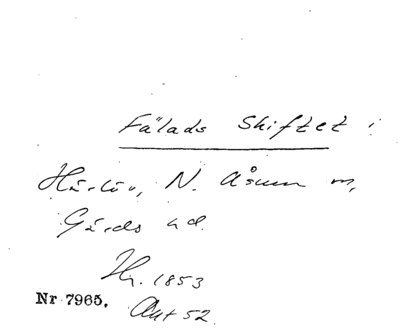 Fälads Skiftet i
Härlöv, N. Åsum m,
Gärds hd.
Hr. 1853
Nr 7965. Ant 52.